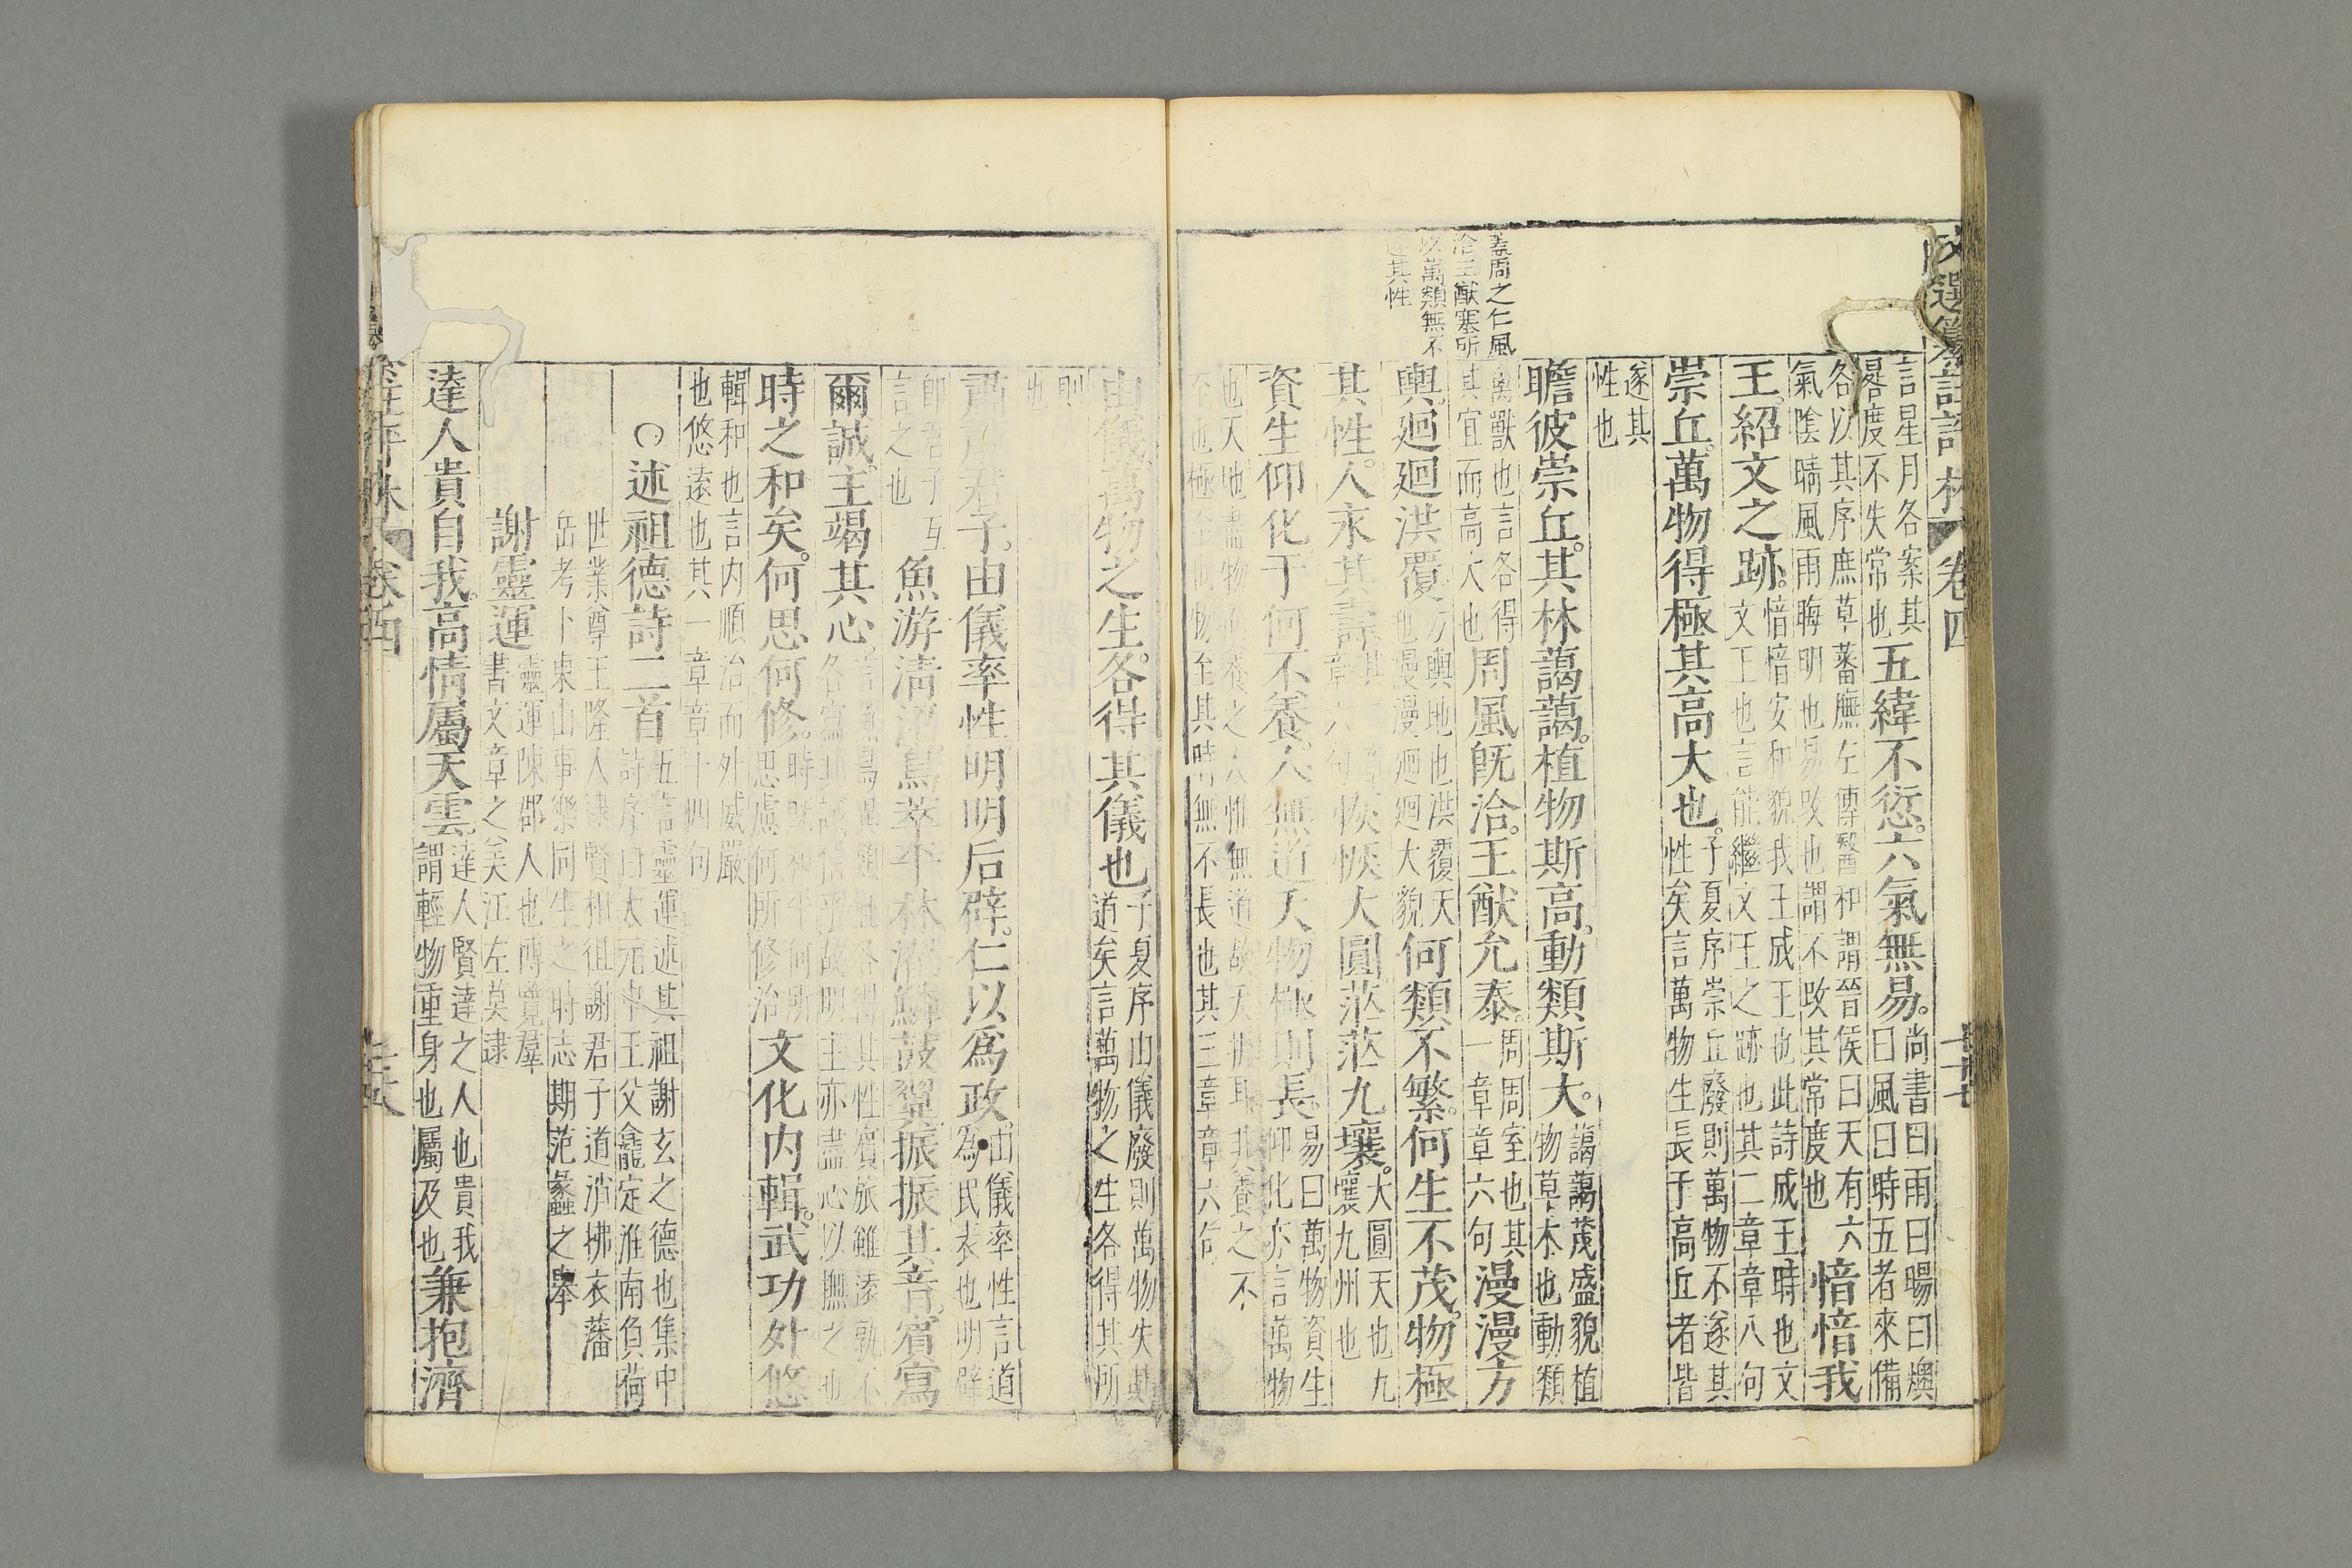 文選纂註評林 卷四
蓋周之仁風
洽王猷塞所
以萬類無不
遂其性
言星月各案其
晷度不失常也
五緯不愆六氣無易
尚書曰雨曰暘曰燠
曰風曰時五者來備
各以其序庶草蕃廡左傳醫和謂晉侯曰天有六
氣陰晴風雨晦明也易改也謂不改其常度也
愔愔我
王紹文之跡
愔愔安和貌我王成王也此詩成王時也文
文王也言能繼文王之跡也其二章章八句
崇丘萬物得極其高大也
子夏序崇丘廢則萬物不遂其
性矣言萬物生長于高丘者皆
遂其
性也
瞻彼崇丘其林藹藹植物斯高動類斯大
藹藹茂盛貌植
物草木也動類
萬獸也言各得
其宜而高大也
周風既洽王猷允泰
周周室也其
一章章六句
漫漫方
輿迴迴洪覆
方輿地也洪覆天
也漫漫迴迴大貌
何類不繁何生不茂物極
其性人永其壽
其二章
章六句
恢恢大圓茫茫九壤
大圓天也九
壤九州也
資生仰化于何不養人無道夭物極則長
易曰萬物資生
仰化亦言萬物
也天地盡物而養之人惟無道故夭折耳其養之不
不也極至也物至其時無不長也其三章章六句
由儀萬物之生各得其儀也
子夏序由儀廢則萬物失其
道矣言萬物之生各得其所
則
也
肅肅君子由儀率性明明后辟仁以為政
由儀率性言道
為民表也明辟
即君子互
言之也
魚游清沼鳥萃平林濯鱗鼓翼振振其音賓寫
爾誠主竭其心
時之和矣何思何修
時既和平何所
思慮何所修治
文化內輯武功外悠
輯和也言內順治而外威嚴
也悠遠也其一章章十四句
○述祖德詩二首
五言靈運述其祖謝玄之德也集中
詩序曰太元中王父龕定淮南負荷
世業尊王隆人逮賢相徂謝君子道消拂衣蕃
岳考卜東山事樂同生之時志期范蠡之舉
謝靈運
靈運陳郡人也博覽羣
書文章之美江左莫逮
達人貴自我高情屬天雲
達人賢達之人也貴我
謂輕物重身也屬及也
兼抱濟